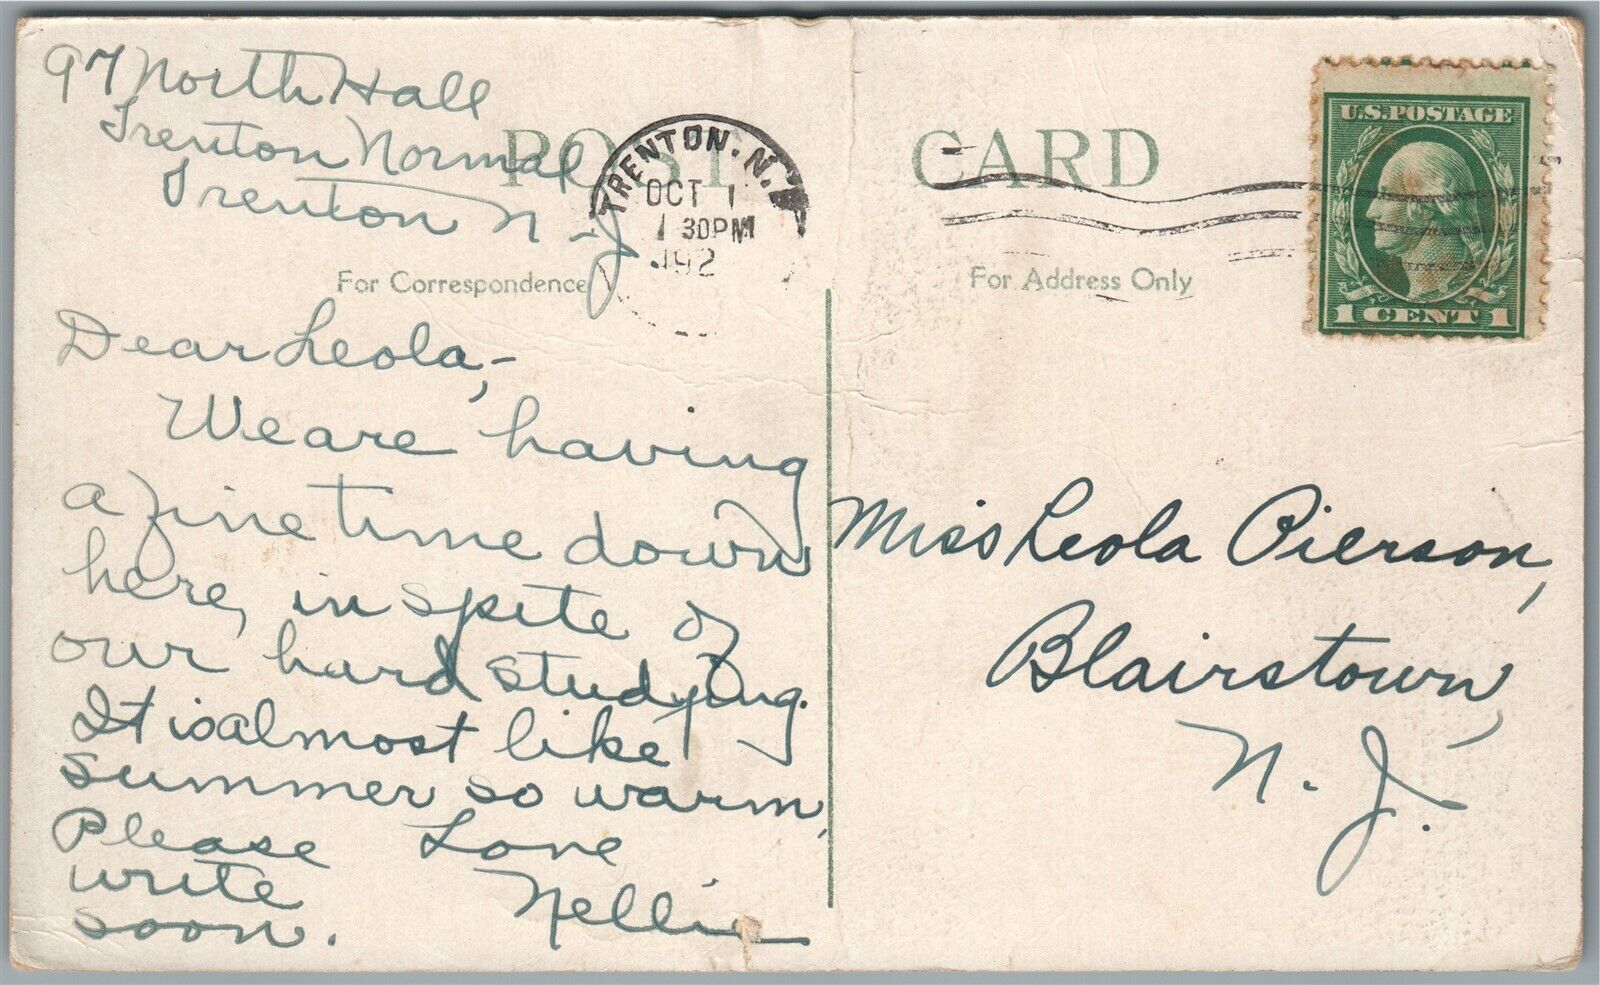 97 North Hall
Trenton Normal
Trenton N-J.
POST CARD
TRENTON. N.J.
OCT 1
30PM
192
U.S. POSTAGE
1 CENT 1
For Correspondence
For Address Only
Dear Leola,-
We are having
a fine time down
here, in spite of
our hard studying.
It is almost like
summer so warm.
Please Love
write Nellie
soon.
Miss Leola Pierson,
Blairstown,
N. J.